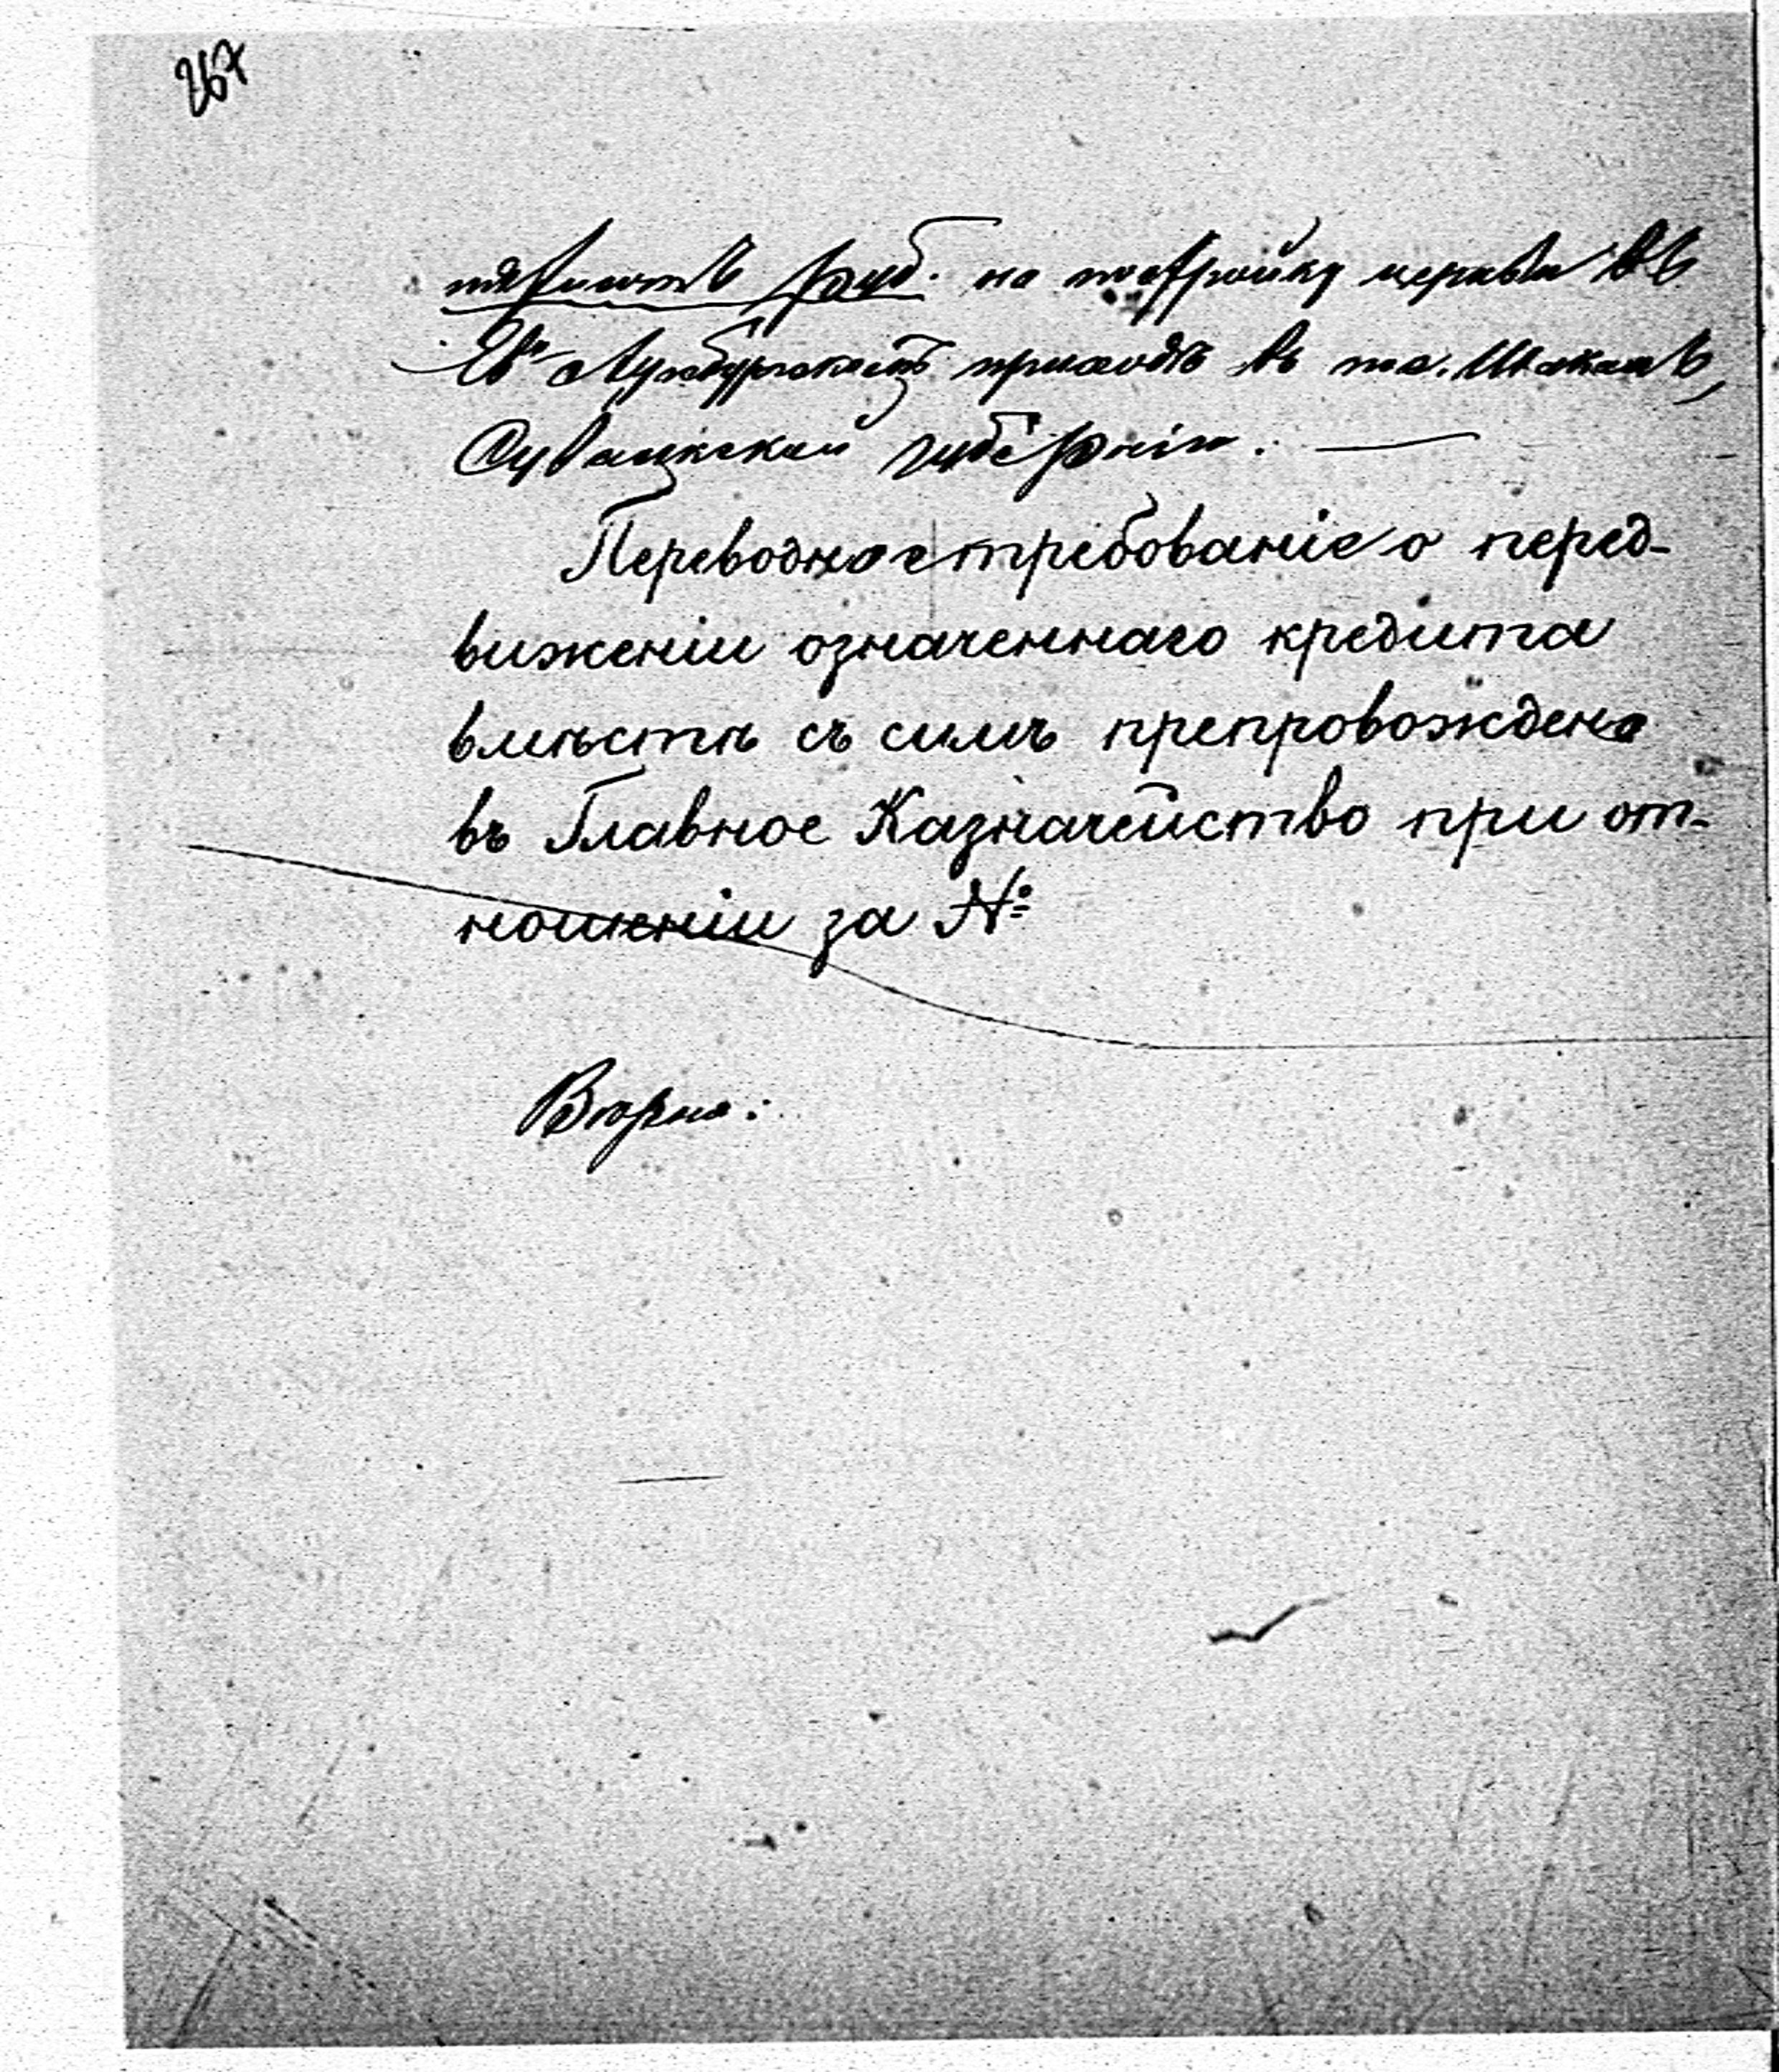 267
пятьсотъ руб. на постройку церкви въ
Ев. Аугсбургскомъ приходѣ въ
Сувалкской губерніи. —
Переводное требованіе о перед-
виженіи означеннаго кредита
вмѣстѣ съ симъ препровождено
въ Главное Казначейство при от-
ношеніи за №
Вѣрно: